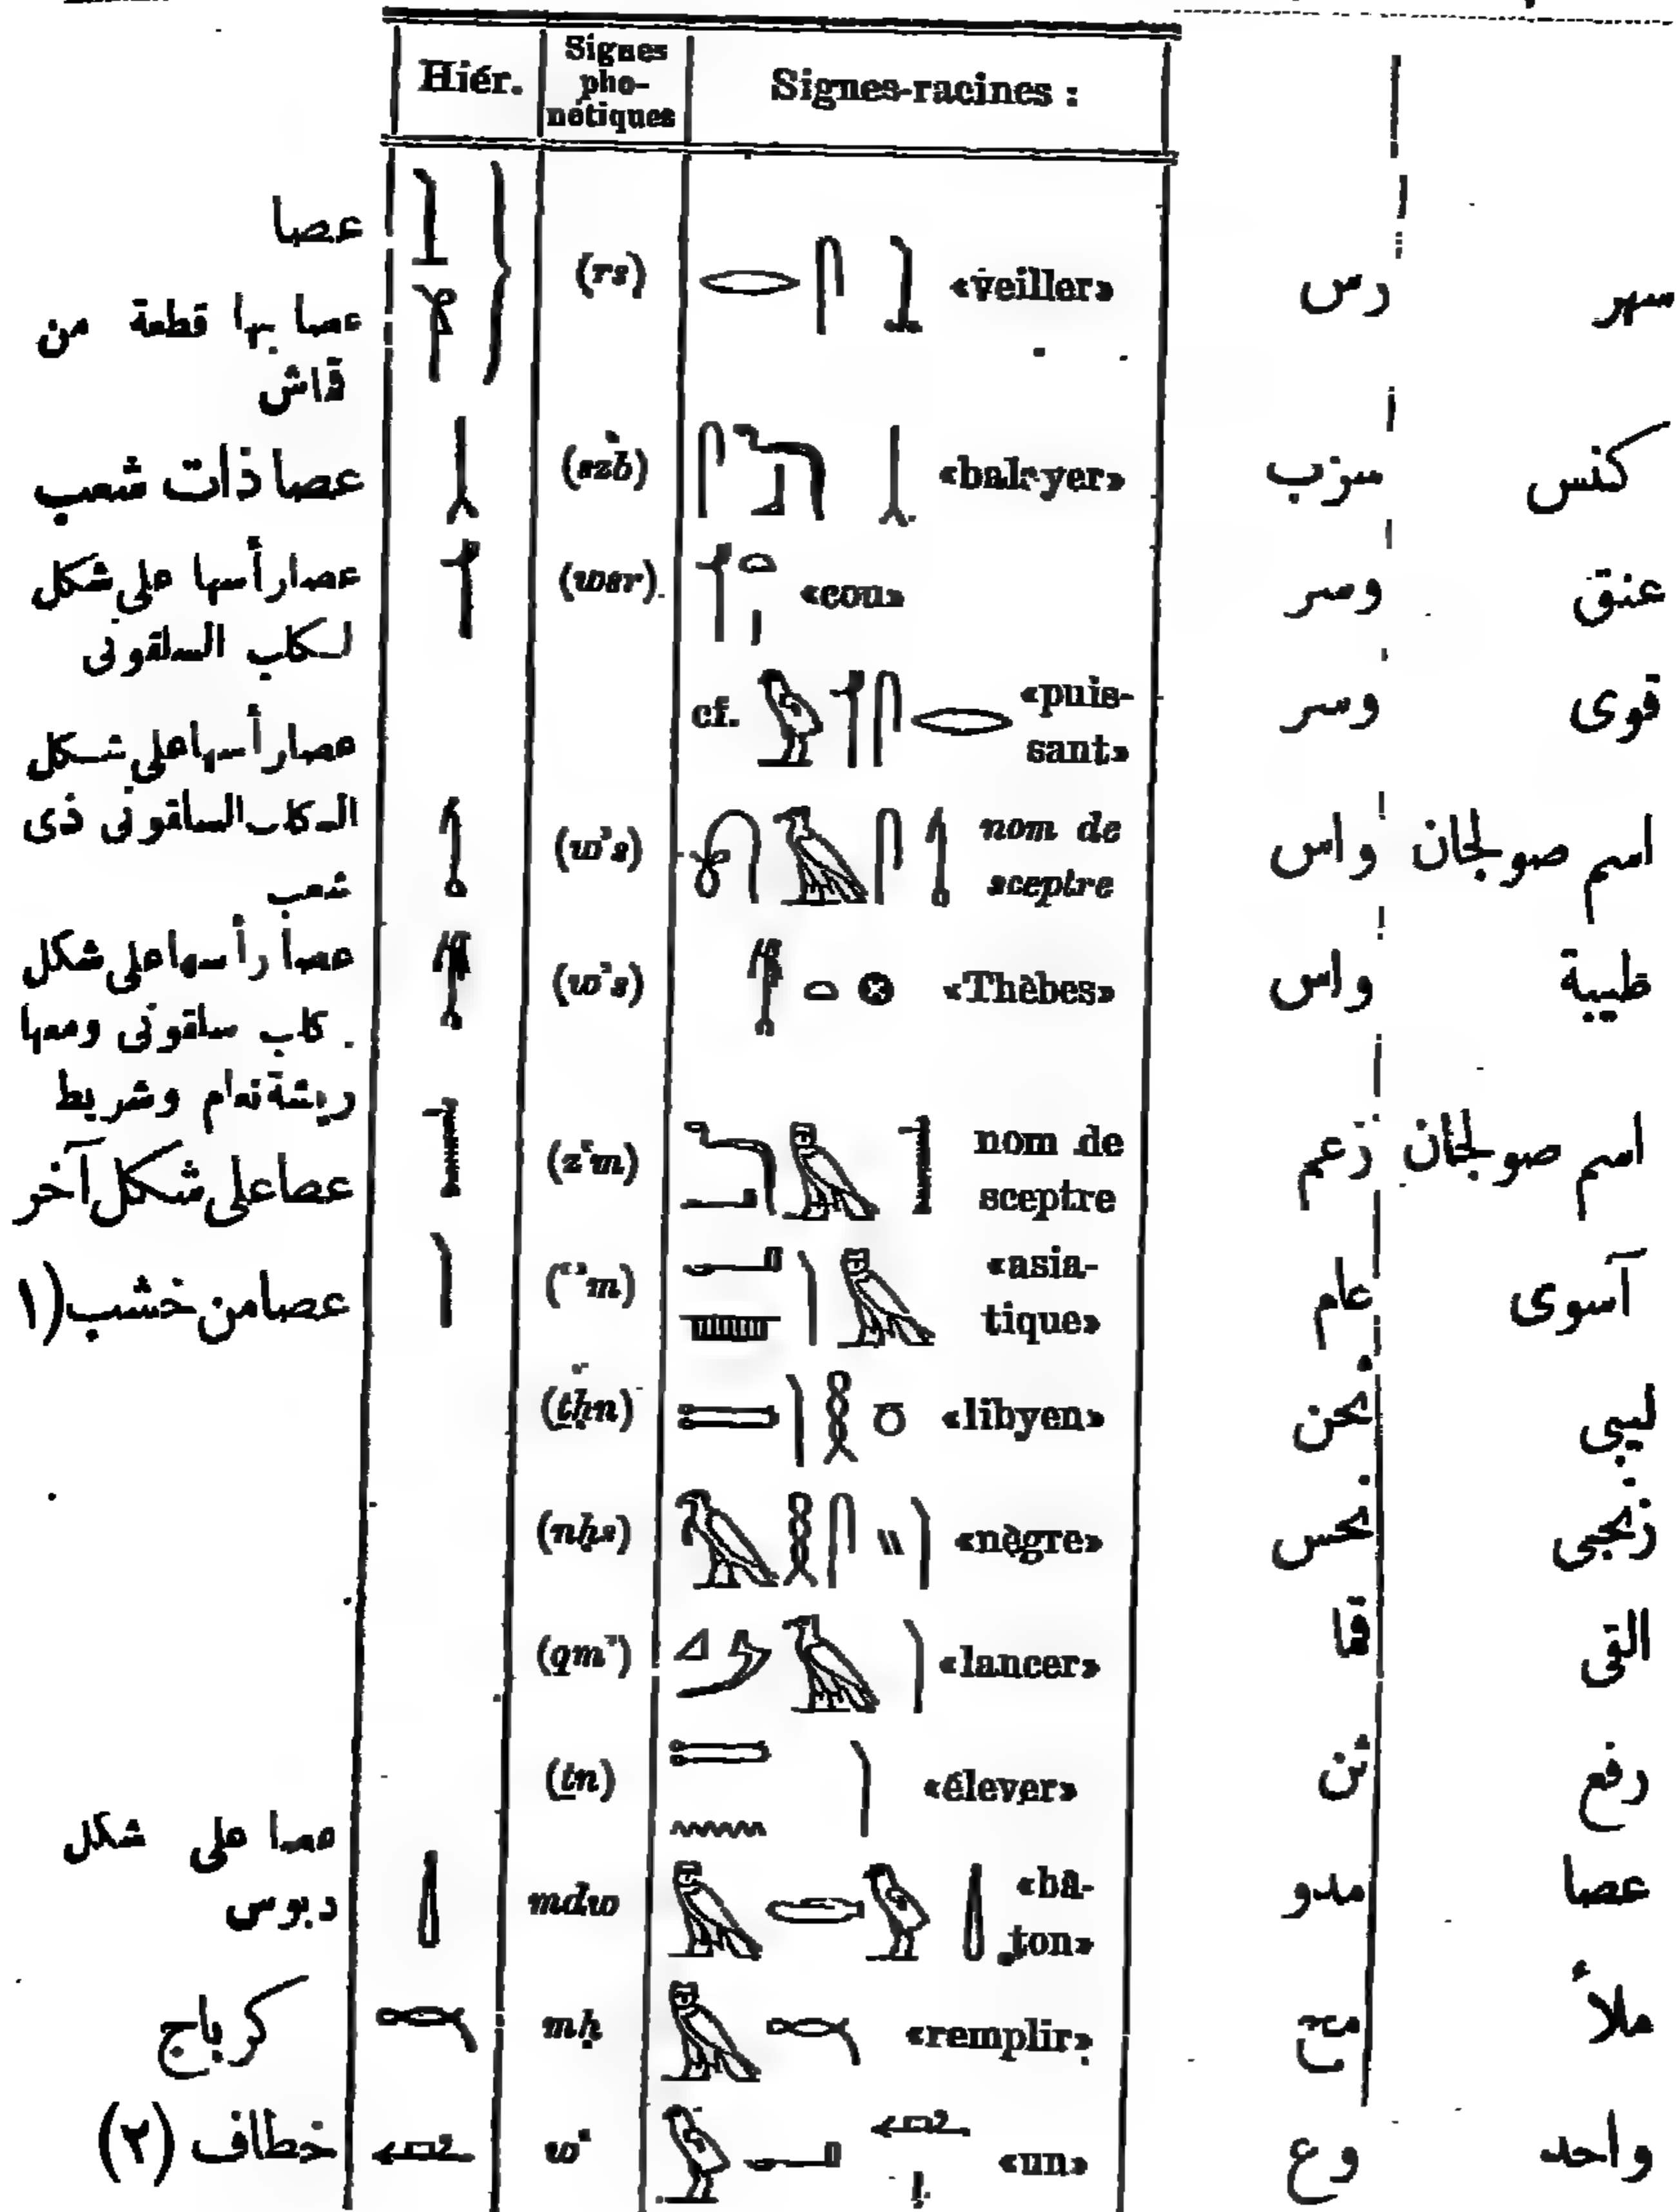 Hiér. Signes pho-nétiques Signes-racines :
عصا
عصا بها قطعة من (rs) «veiller» رس سهر
قاش
عصا ذات شعب (szb) «balayer» سزب كنس
عصا رأسها على شكل (wsr) «cou» وسر عنق
الكلب السلقونى
cf. «puis-sant» وسر قوى
عصا رأسها على شكل
الكلب السلقونى ذى (wʾs) nom de sceptre واس اسم صولجان
شعب
عصا رأسها على شكل (wʾs) «Thèbes» واس طيبة
كلب سلقونى ومعها
ريشة نعام وشريط
عصا على شكل آخر (zʿm) nom de sceptre زعم اسم صولجان
عصا من خشب (١ (ʿʾm) «asia-tique» عام آسوى
(ṯḥn) «libyen» ثحن ليبى
(nḥs) «nègre» نحس زنجى
(qmʾ) «lancer» قما التى
(ṯn) «élever» ثن رفع
عصا على شكل
دبوس mdw «bâ-ton» مدو عصا
كرباج mḥ «remplir» مح ملأ
خطاف (٢) wʿ «un» وع واحد